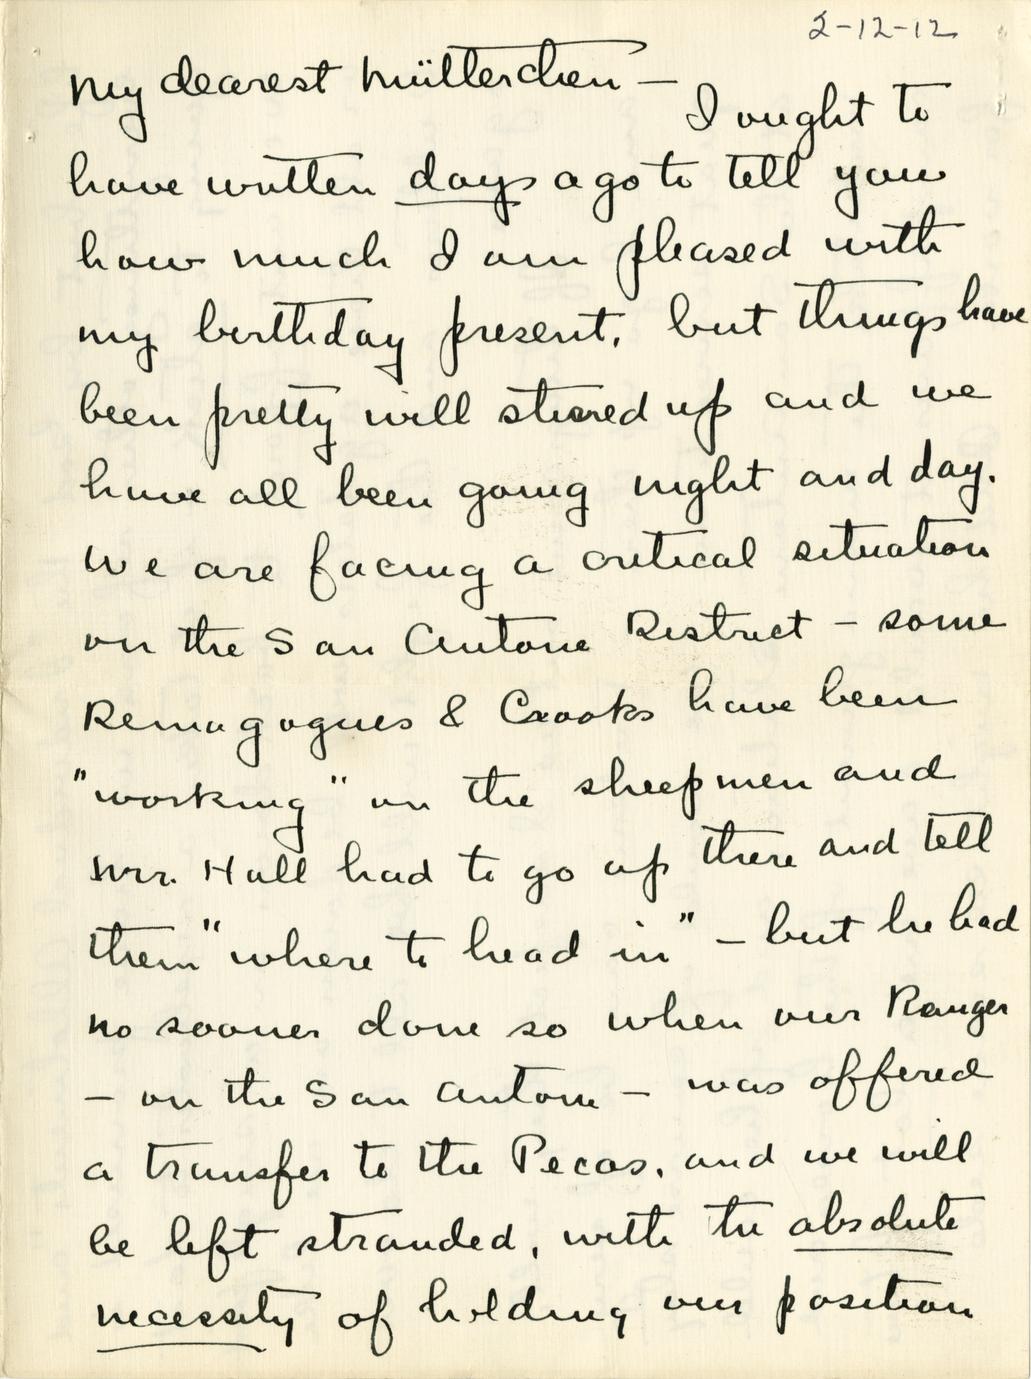 2-12-12
My dearest Mütterchen —
I ought to
have written days ago to tell you
how much I am pleased with
my birthday present, but things have
been pretty well stirred up and we
have all been going night and day.
We are facing a critical situation
on the San Antone District — some
Demagogues & Crooks have been
"working" on the sheepmen and
Mr. Hall had to go up there and tell
them "where to head in" — but he had
no sooner done so when our Ranger
— on the San Antone — was offered
a transfer to the Pecos, and we will
be left stranded, with the absolute
necessity of holding our position